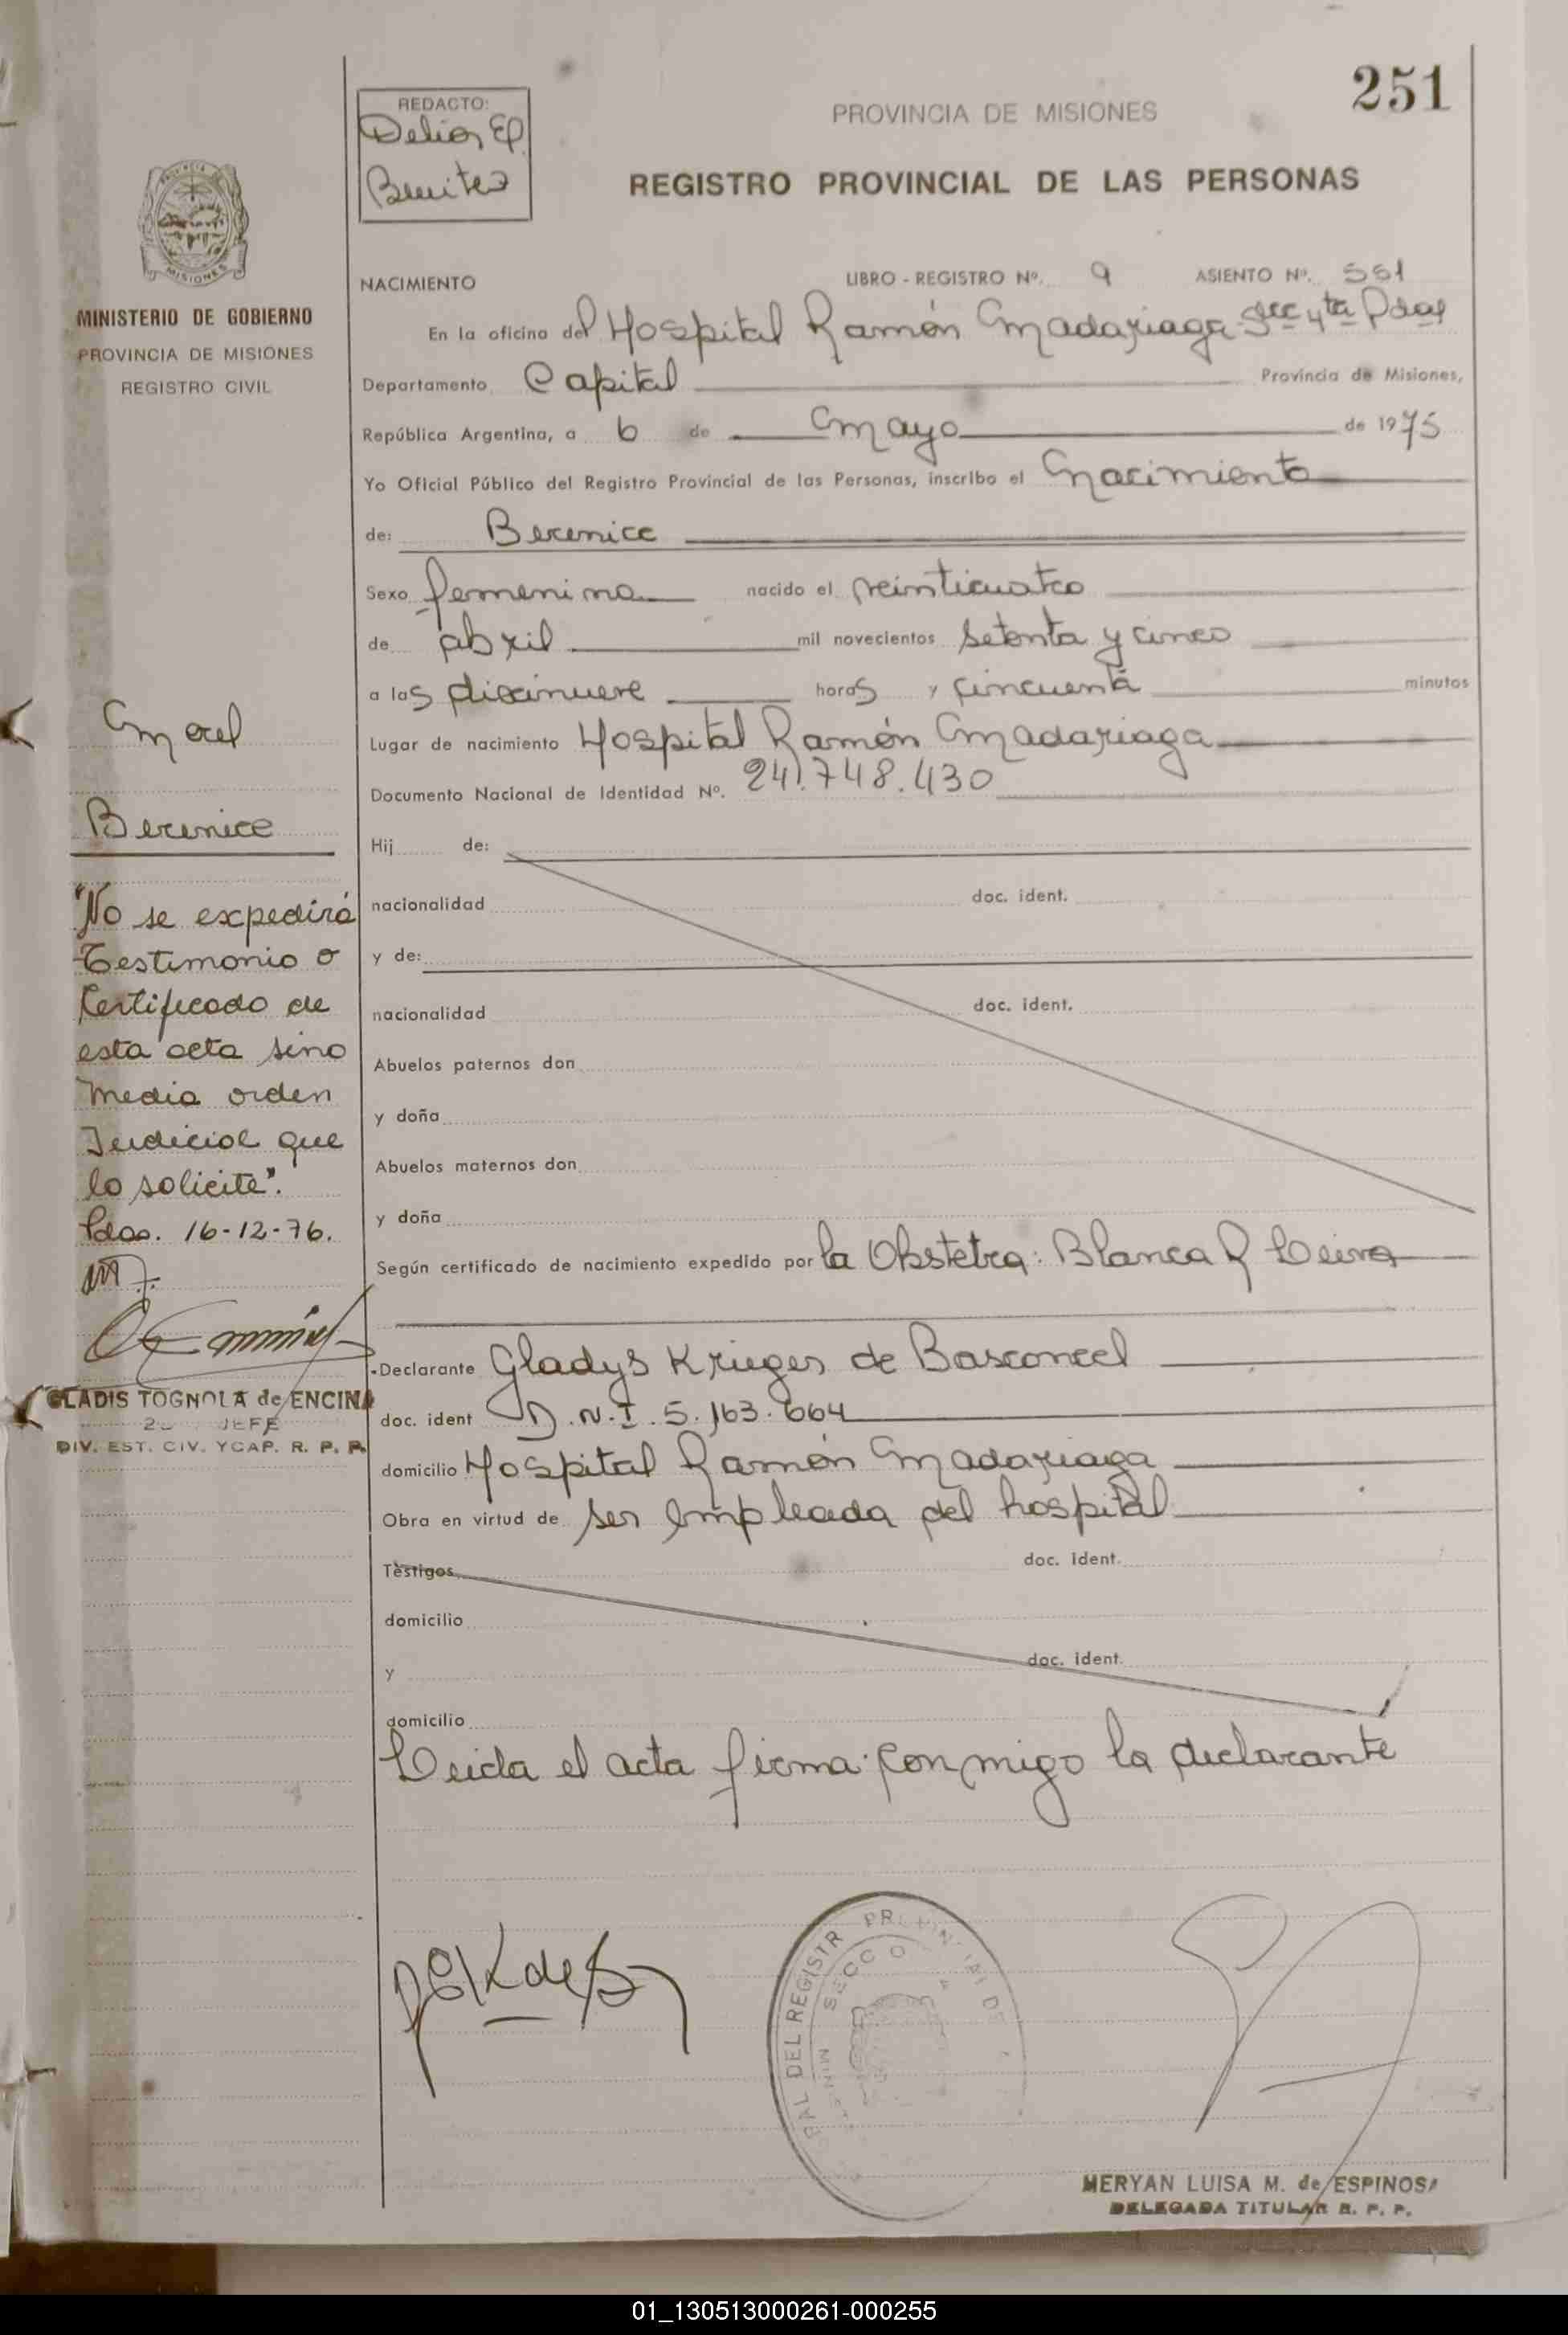 251
REDACTO:
Delia E.
Benitez
PROVINCIA DE MISIONES
REGISTRO PROVINCIAL DE LAS PERSONAS
PROVINCIA DE
MISIONES
MINISTERIO DE GOBIERNO
PROVINCIA DE MISIONES
REGISTRO CIVIL
NACIMIENTO LIBRO - REGISTRO Nº. 9 ASIENTO Nº. 551
En la oficina del Hospital Ramón Madariaga Secc 4ta Pdas
Departamento Capital Provincia de Misiones,
República Argentina, a 6 de Mayo de 1975
Yo Oficial Público del Registro Provincial de las Personas, inscribo el Nacimiento
de: Berenice
Sexo femenino nacido el veinticuatro
de abril mil novecientos setenta y cinco
a las diecinueve horas y cincuenta minutos
Lugar de nacimiento Hospital Ramón Madariaga
Documento Nacional de Identidad Nº. 24.748.430
Hij de:
nacionalidad doc. ident.
y de:
nacionalidad doc. ident.
Abuelos paternos don
y doña
Abuelos maternos don
y doña
Según certificado de nacimiento expedido por la Obstetra: Blanca R Leiva
Declarante Gladys Krieger de Basconcel
doc. ident D.N.I. 5.163.664
domicilio Hospital Ramón Madariaga
Obra en virtud de ser empleada del hospital
Testigos doc. ident.
domicilio
y doc. ident.
domicilio
Leida el acta firma conmigo la declarante
Berenice
"No se expedirá
Testimonio o
Certificado de
esta acta sino
Media orden
Judicial que
lo solicite".
Pdas. 16-12-76.
GLADIS TOGNOLA de ENCINA
JEFE
DIV. EST. CIV. Y CAP. R. P. P.
MERYAN LUISA M. de ESPINOSA
DELEGADA TITULAR R. P. P.
01_130513000261-000255